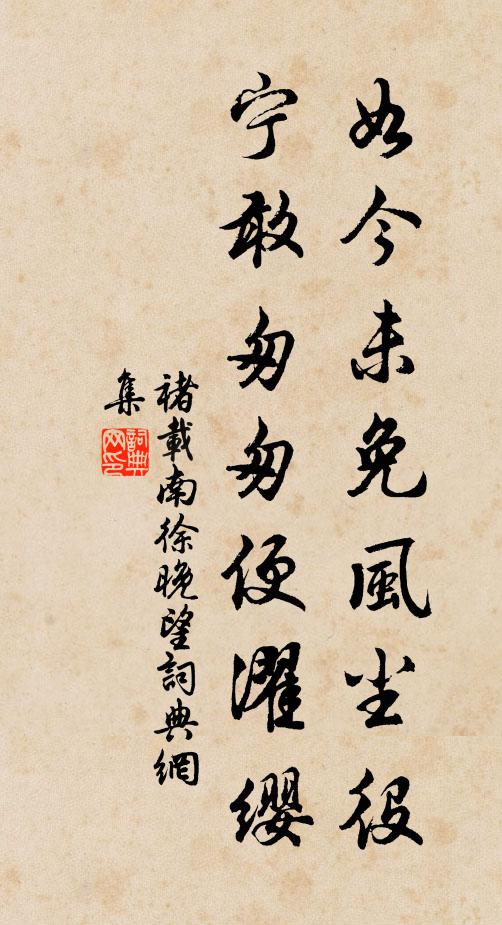 如今未免風尘役
宁敢匆匆便濯缨
褚載南徐晚望詞典網
集
詞典
网印